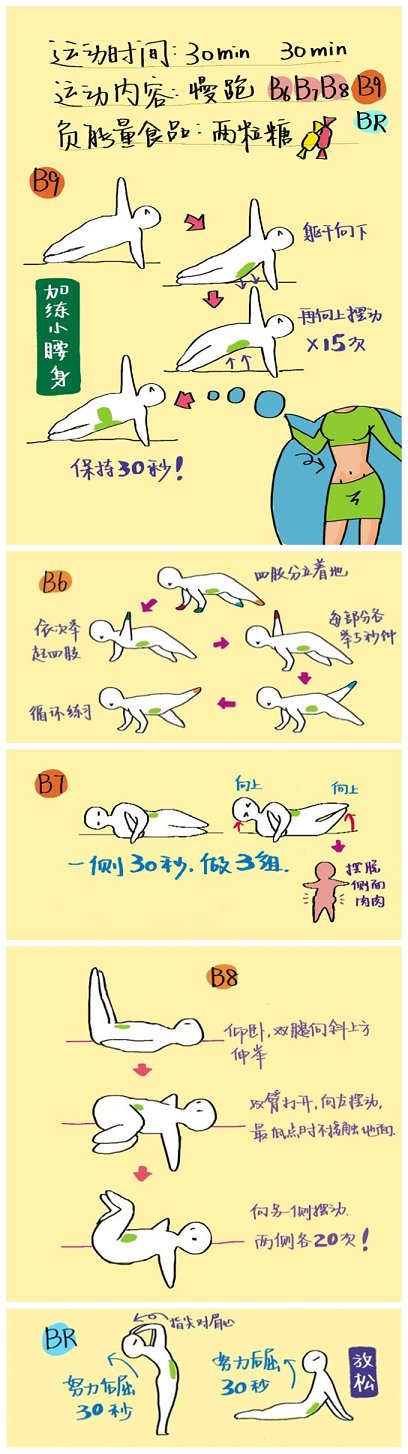 运动时间:30min 30min
运动内容:慢跑 B6 B7 B8 B9
BR
负能量食品:两粒糖
B9
躯干向下
加练小腰身
再向上摆动
×15次
保持30秒!
B6
四肢分立着地
依次举
起四肢
每部分各
举5秒钟
循环练习
B7
向上
向上
一侧30秒,做3组.
摆脱
侧面
肉肉
B8
仰卧,双腿向斜上方
伸举
双臂打开,向左摆动,
最低点时不接触地面.
向另一侧摆动.
两侧各20次!
BR
指尖对眉心
努力后屈
30秒
努力后屈
30秒
放松